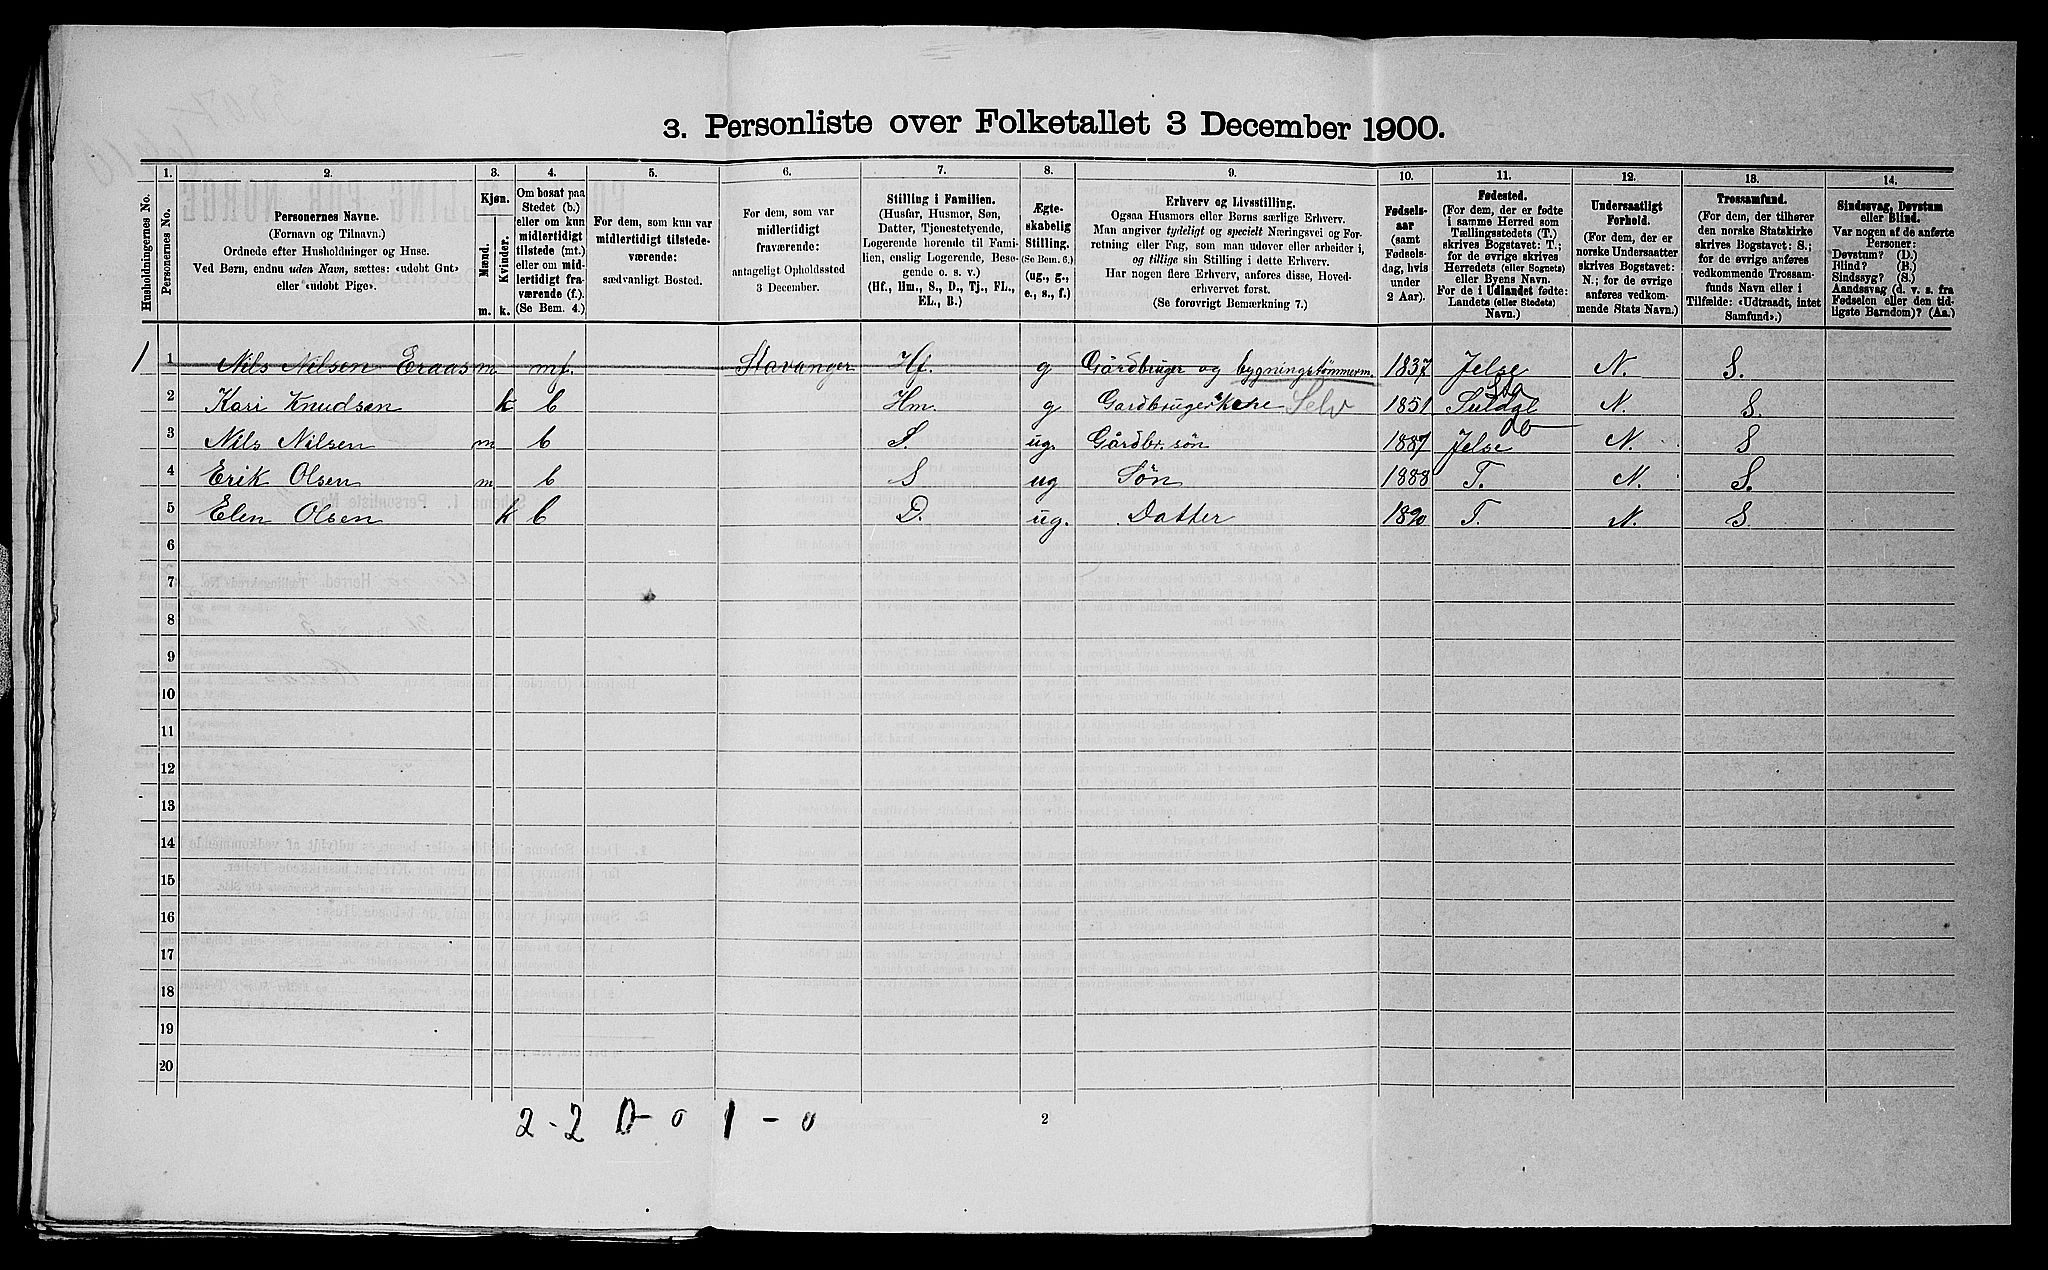 3. Personliste over Folketallet 3 December 1900.
1. 2. 3. 4. 5. 6. 7. 8. 9. 10. 11. 12. 13. 14.
Husholdningernes No.
Personernes No.
Personernes Navne.
(Fornavn og Tilnavn.)
Ordnede efter Husholdninger og Huse.
Ved Børn, endnu uden Navn, sættes: «udøbt Gut»
eller «udøbt Pige».
Kjøn.
Mænd.
Kvinder.
m. k.
Om bosat paa
Stedet (b.)
eller om kun
midlertidigt
tilstede (mt.)
eller om mid-
lertidigt fra-
værende (f.)
(Se Bem. 4.)
For dem, som kun var
midlertidigt tilstede-
værende:
sædvanligt Bosted.
For dem, som var
midlertidigt
fraværende:
antageligt Opholdssted
3 December.
Stilling i Familien.
(Husfar, Husmor, Søn,
Datter, Tjenestetyende,
Logerende hørende til Fami-
lien, enslig Logerende, Besø-
gende o. s. v.)
(Hf., Hm., S., D., Tj., FL.,
EL., B.)
Ægte-
skabelig
Stilling.
(Se Bem. 6.)
(ug., g.,
e., s., f.)
Erhverv og Livsstilling.
Ogsaa Husmors eller Børns særlige Erhverv.
Man angiver tydeligt og specielt Næringsvei og For-
retning eller Fag, som man udøver eller arbeider i,
og tillige sin Stilling i dette Erhverv.
Har nogen flere Erhverv, anføres disse, Hoved-
erhvervet først.
(Se forøvrigt Bemærkning 7.)
Fødsels-
aar
(samt
Fødsels-
dag, hvis
under
2 Aar).
Fødested.
(For dem, der er fødte
i samme Herred som
Tællingsstedets (T.)
skrives Bogstavet: T.;
for de øvrige skrives
Herredets (eller Sognets)
eller Byens Navn.
For de i Udlandet fødte:
Landets (eller Stedets)
Navn.)
Undersaatligt
Forhold.
(For dem, der er
norske Undersaatter
skrives Bogstavet:
N.; for de øvrige
anføres vedkom-
mende Stats Navn.)
Trossamfund.
(For dem, der tilhører
den norske Statskirke
skrives Bogstavet: S.;
for de øvrige anføres
vedkommende Trossam-
funds Navn eller i
Tilfælde: «Udtraadt, intet
Samfund».)
Sindssvag, Døvstum
eller Blind.
Var nogen af de anførte
Personer:
Døvstum? (D.)
Blind? (B.)
Sindssyg? (S.)
Aandssvag (d. v. s. fra
Fødselen eller den tid-
ligste Barndom)? (Aa.)
1 1 Nils Nilsen Eraas m mt. Stavanger Hf. g Gårdbruger og bygningstømmerm. 1837 Jelse N. S.
2 Kari Knudsen k b Hm. g Gardbrugerske Selv 1851 Suldal N. S.
3 Nils Nilsen m b S. ug. Gårdbr. søn 1887 Jelse do N. S
4 Erik Olsen m b S ug Søn 1888 T. N. S.
5 Elen Olsen k b D. ug. Datter 1890 T. N. S
6
7
8
9
10
11
12
13
14
15
16
17
18
19
20
2 - 2 D - 0 1 - 0
2